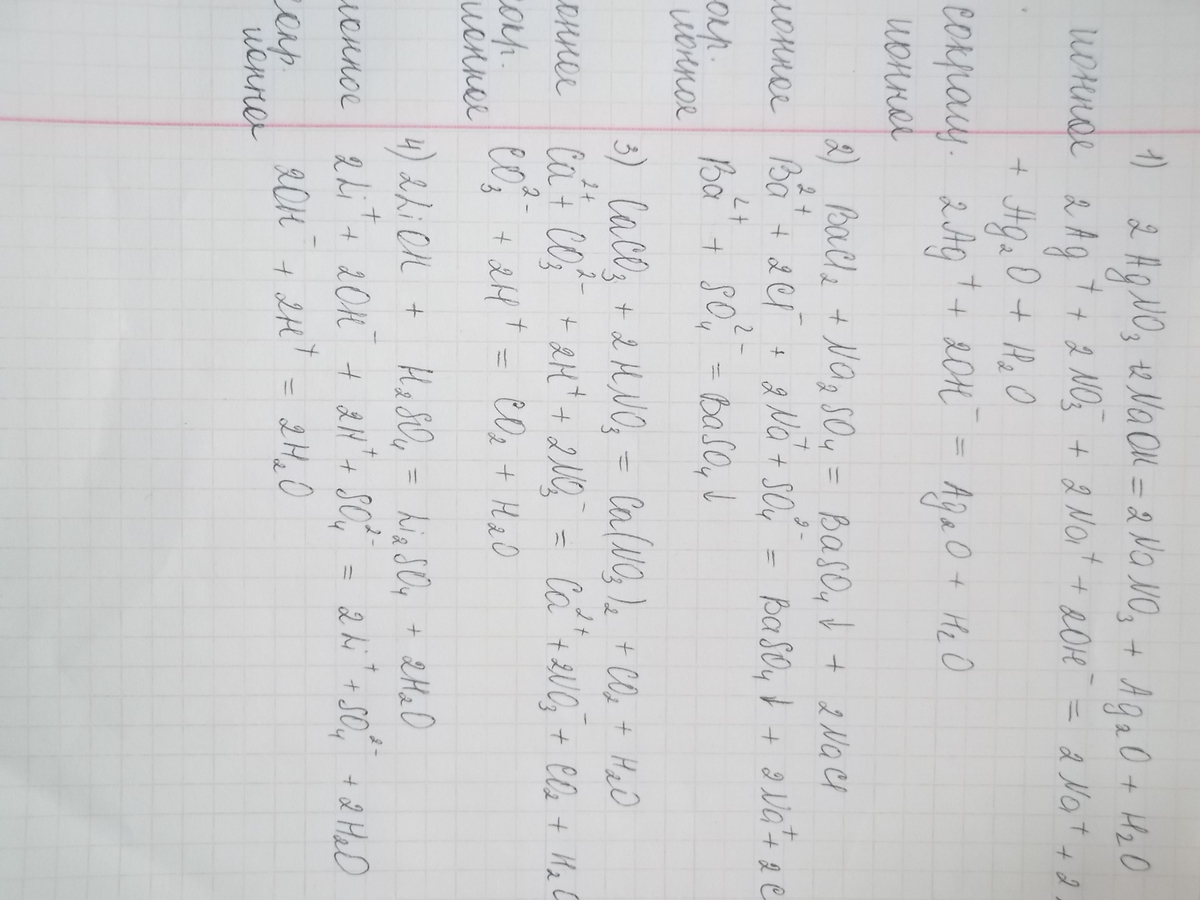 1) 2AgNO₃ + 2NaOH = 2NaNO₃ + Ag₂O + H₂O
ионное 2Ag⁺ + 2NO₃⁻ + 2Na⁺ + 2OH⁻ = 2Na⁺ + 2
+ Ag₂O + H₂O
сокращ. 2Ag⁺ + 2OH⁻ = Ag₂O + H₂O
ионное
2) BaCl₂ + Na₂SO₄ = BaSO₄↓ + 2NaCl
ионное Ba²⁺ + 2Cl⁻ + 2Na⁺ + SO₄²⁻ = BaSO₄↓ + 2Na⁺ + 2C
окр. Ba²⁺ + SO₄²⁻ = BaSO₄↓
ионное
3) CaCO₃ + 2HNO₃ = Ca(NO₃)₂ + CO₂ + H₂O
онное Ca²⁺ + CO₃²⁻ + 2H⁺ + 2NO₃⁻ = Ca²⁺ + 2NO₃⁻ + CO₂ + H₂O
окр. CO₃²⁻ + 2H⁺ = CO₂ + H₂O
ионное
4) 2LiOH + H₂SO₄ = Li₂SO₄ + 2H₂O
ионное 2Li⁺ + 2OH⁻ + 2H⁺ + SO₄²⁻ = 2Li⁺ + SO₄²⁻ + 2H₂O
сокр. 2OH⁻ + 2H⁺ = 2H₂O
ионное